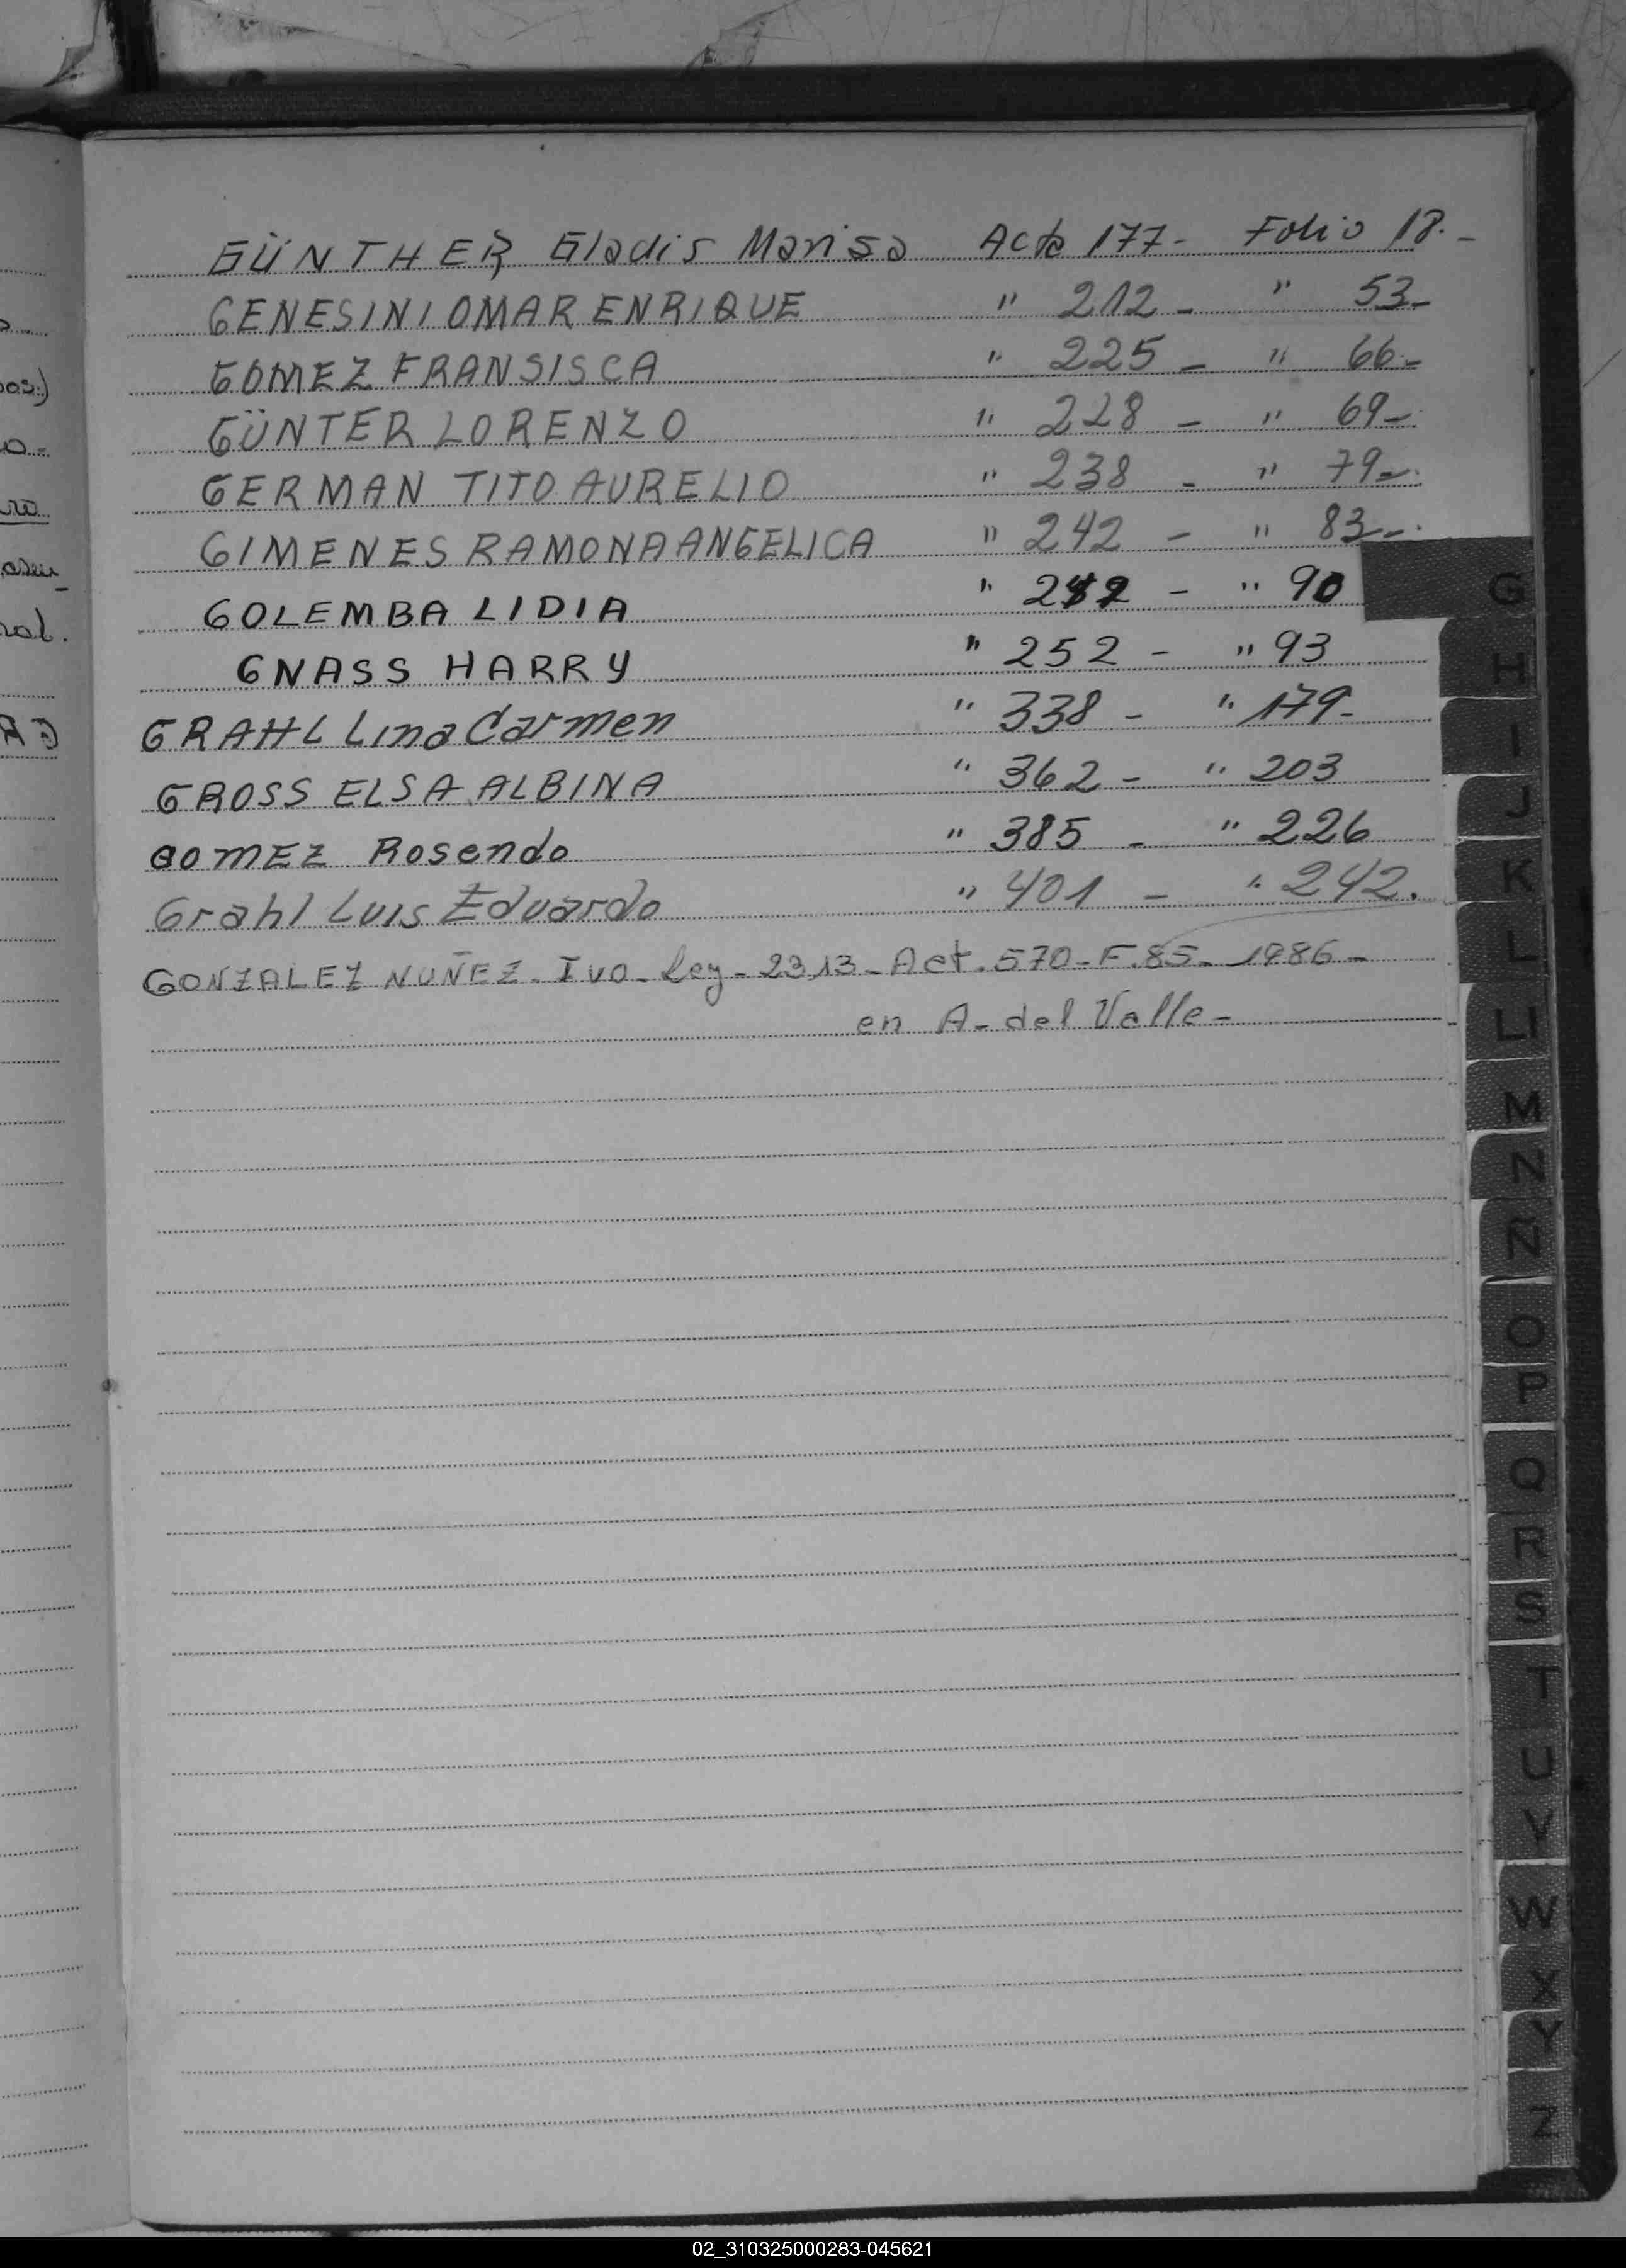 GÜNTHER Gladis Marisa Acta 177- Folio 18.-
GENESINI OMAR ENRIQUE " 212- " 53-
GOMEZ FRANSISCA " 225- " 66-
GÜNTER LORENZO " 228- " 69-
GERMAN TITO AURELIO " 238- " 79-
GIMENES RAMONA ANGELICA " 242- " 83-
GOLEMBA LIDIA " - " 90
GNASS HARRY " 252- " 93
GRAHL Lina Carmen " 338- " 179-
GROSS ELSA ALBINA " 362- " 203
GOMEZ Rosendo " 385- " 226
Grahl Luis Eduardo " 401- " 242.
GONZALEZ NUÑEZ. Ivo- Ley- 2313- Act. 570- F.85- 1986-
en A- del Valle-
G
H
I
J
K
L
Ll
M
N
Ñ
O
P
Q
R
S
T
U
V
W
X
Y
Z
02_310325000283-045621